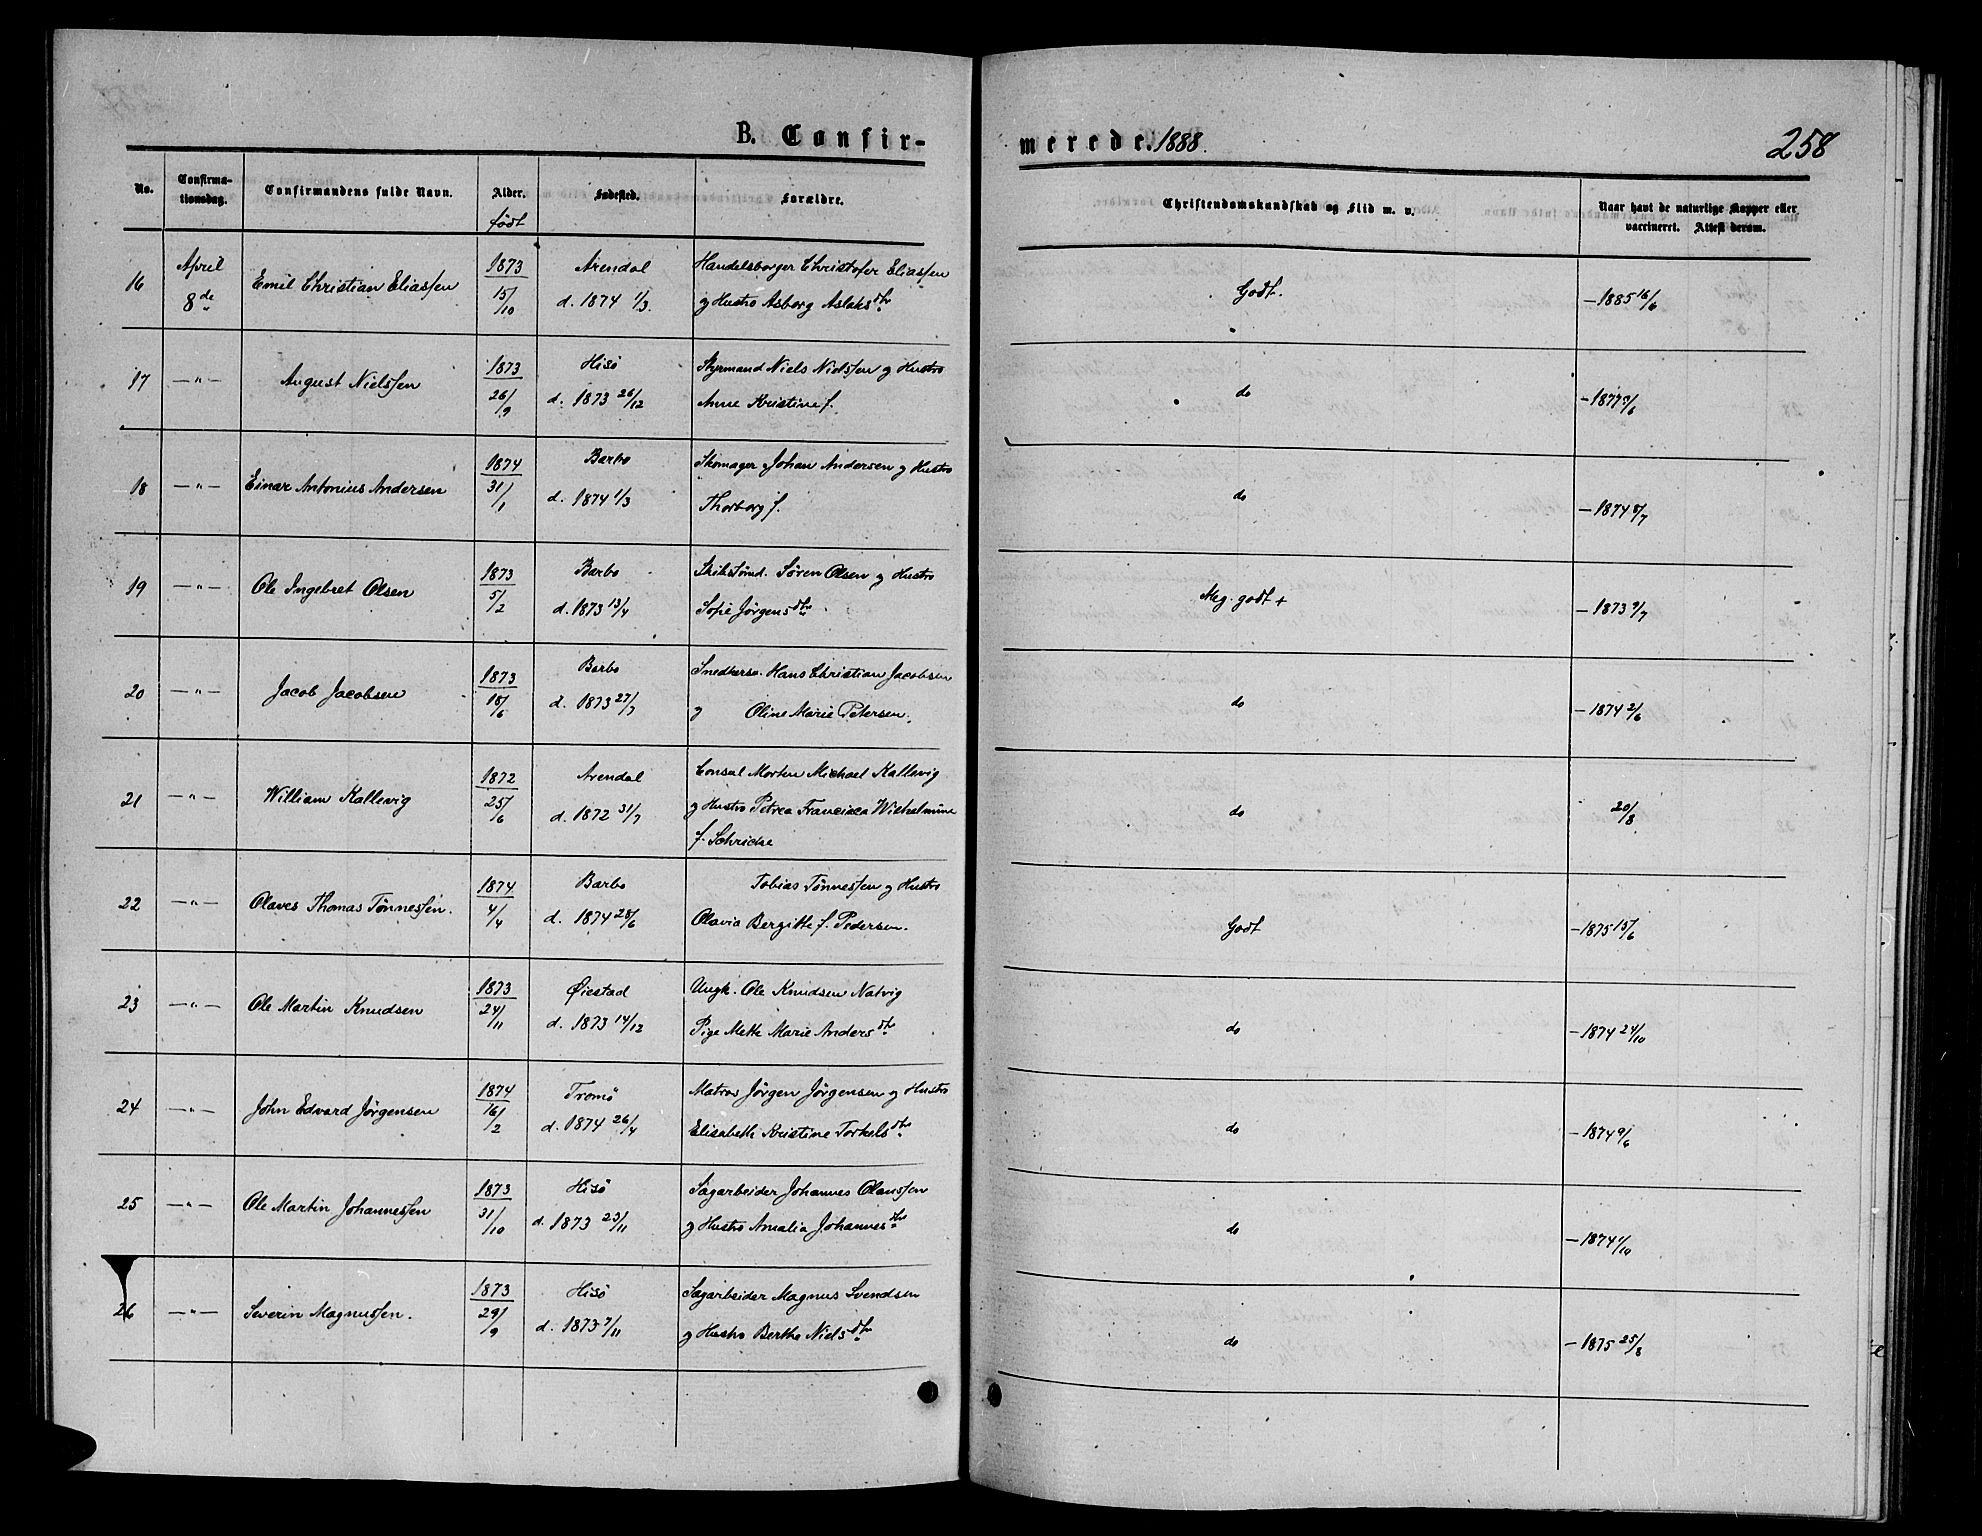 B. Confir-
merede. 1888.
258
No.
Confirma-
tionsdag.
Confirmandens fulde Navn.
Alder.
født
Fødested.
Forældre.
Christendomskundskab og Flid m. v.
Naar havt de naturlige Kopper eller
vaccineret. Attest derom.
16 April 8de Emil Christian Eliassen 1873 15/10 Arendal d. 1874 1/3.
Handelsborger Christofer Eliassen
og Hustro Asborg Aslaksdtr
Godt. - 1885 16/6
17 -"- August Nielssen 1873 26/9 Hisø d. 1873 26/12
Styrmand Niels Nielssen og Hustro
Anne Kristine f.
do - 1877 /6
18 -"- Einar Antonius Andersen 1874 31/1 Barbo d. 1874 1/3
Skomager Johan Andersen og Hustro
Thorborg f.
do - 1874 8/7
19 -"- Ole Ingebret Olsen 1873 5/2 Barbo d. 1873 13/4
Skibstømd. Søren Olsen og Hustro
Sofie Jørgensdtr
Meg. godt + - 1873 9/7
20 -"- Jacob Jacobsen 1873 18/6 Barbo d. 1873 27/7
Snedkersv. Hans Christian Jacobsen
og Oline Marie Petersen.
do - 1874 2/6
21 -"- William Kallevig 1872 25/6 Arendal d. 1872 31/7
Consul Morten Michael Kallevig
og Hustro Petrea Francisca Wilhelmine
f.
do 20/8
22 -"- Olaves Thomas Tønnessen. 1874 4/4 Barbo d. 1874 28/6
Tobias Tønnessen og Hustro
Olavia Bergitte f. Pedersen.
Godt - 1875 15/6
23 -"- Ole Martin Knudsen 1873 24/11 Øiestad d. 1873 14/12
Ungk. Ole Knudsen Natvig
Pige Mette Marie Andersdtr
do - 1874 24/10
24 -"- John Edvard Jørgensen 1874 16/2 Tromø d. 1874 26/4
Matros Jørgen Jørgensen og Hustro
Elisabeth Kristine Torkelsdtr
do - 1874 9/6
25 -"- Ole Martin Johannessen 1873 31/10 Hisø d. 1873 23/11
Sagarbeider Johannes Olaussen
og Hustro Amalia Johannesdtr
do - 1874 1/10
26 -"- Severin Magnussen. 1873 29/9 Hisø d. 1873 7/11
Sagarbeider Magnus Svendsen
og Hustro Berthe Nielsdtr
do - 1875 25/8